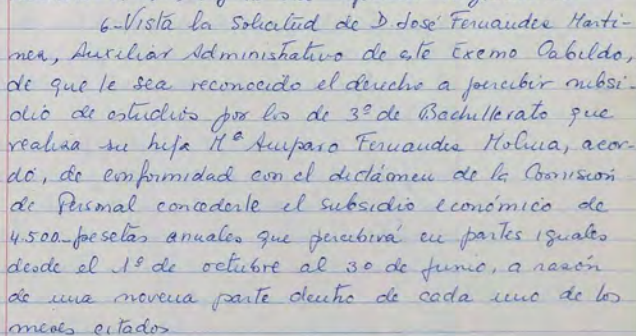 6- Vista la Solicitud de D. José Fernandez Marti-
nez, Auxiliar Administrativo de este Excmo Cabildo,
de que le sea reconocido el derecho a percibir subsi-
dio de estudios por los de 3º de Bachillerato que
realiza su hija Mª Amparo Fernandez Molina, acor-
dó, de conformidad con el dictámen de la Comision
de Personal concederle el subsidio económico de
4.500-pesetas anuales que percibirá en partes iguales
desde el 1º de octubre al 30 de junio, a razón
de una novena parte dentro de cada uno de los
meses citados